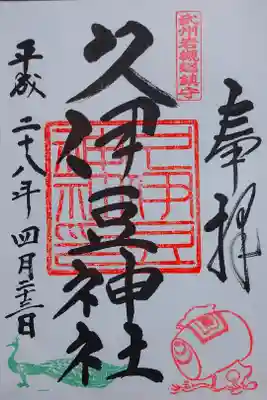 奉拝
武州岩槻総鎮守
久伊豆神社
平成二十八年四月二十三日